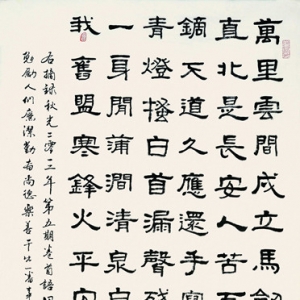 萬里雲間戍立馬劍
直北是長安人苦百
鏑天道久應還手
青燈搔白髮漏聲殘
一身閒蒲澗清泉白
我舊盟寒鋒火平安
右摘錄秋光二零一三年第五期卷首語
勉勵人們廉潔勤奮尚德樂善